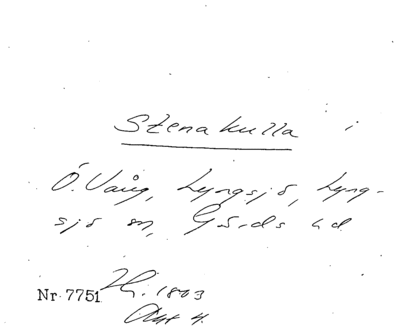 Stenakulla i
Ö. Vång, Lyngsjö, Lyng-
sjö sn, Gärds hd
Nr. 7751 Hi. 1803
Akt 4.